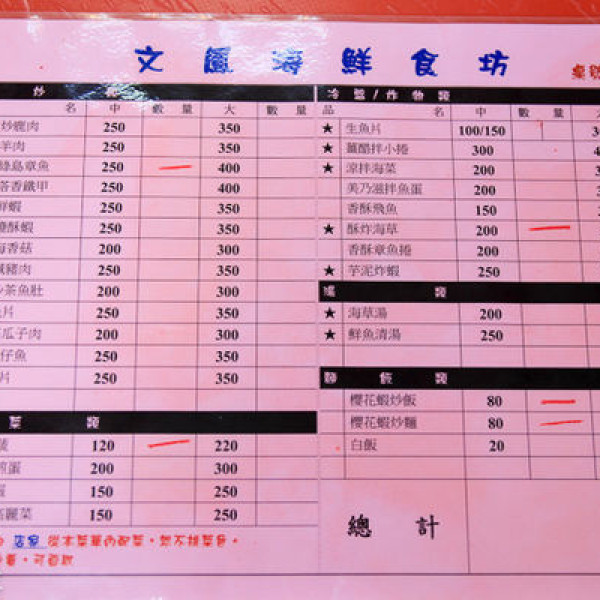 文鳳海鮮食坊
桌號
炒 類
名 中 數量 大 數量
炒鹿肉 250 350
羊肉 250 350
綠島章魚 250 400
塔香鐵甲 250 400
鮮蝦 250 350
鹽酥蝦 250 350
海香菇 200 300
鹹豬肉 250 350
沙茶魚肚 200 300
片 250 350
瓜子肉 200 300
仔魚 250 350
片 250 350
菜 類
120 220
煎蛋 200 300
150 250
高麗菜 150 250
店家 從本菜單內配菜，恕不挑菜色。
冷盤/炸物類
品名 中 數量
★ 生魚片 100/150
★ 薑醋拌小捲 300
★ 涼拌海菜 200
美乃滋拌魚蛋 200
香酥飛魚 150
★ 酥炸海草 200
香酥章魚捲 200
★ 芋泥炸蝦 250
湯 類
★ 海草湯 200
★ 鮮魚清湯 250
麵飯類
櫻花蝦炒飯 80
櫻花蝦炒麵 80
白飯 20
總計